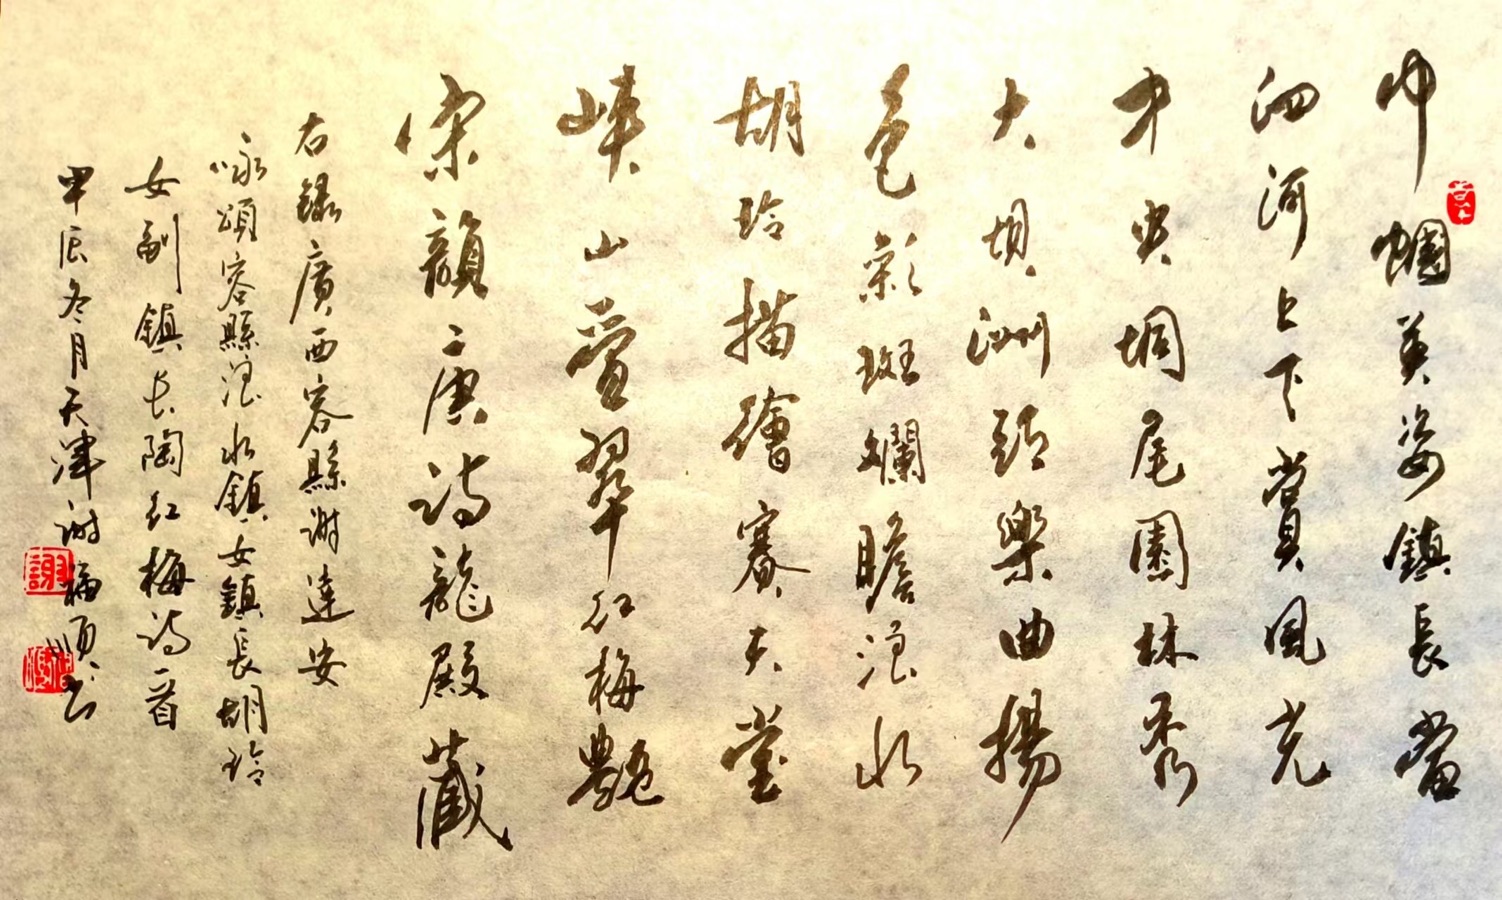 巾幗英姿鎮長當
泗河上下賞風光
才央垌尾園林秀
大垻洲頭樂曲揚
色彩斑斕瞻浪水
胡玲描繪賽天堂
峽山疊翠紅梅艷
宋韻唐詩龍殿藏
右録廣西容縣謝達安
咏頌容縣浪水鎮女鎮長胡玲
女副鎮長陶紅梅詩一首
甲辰冬月天津謝福順書